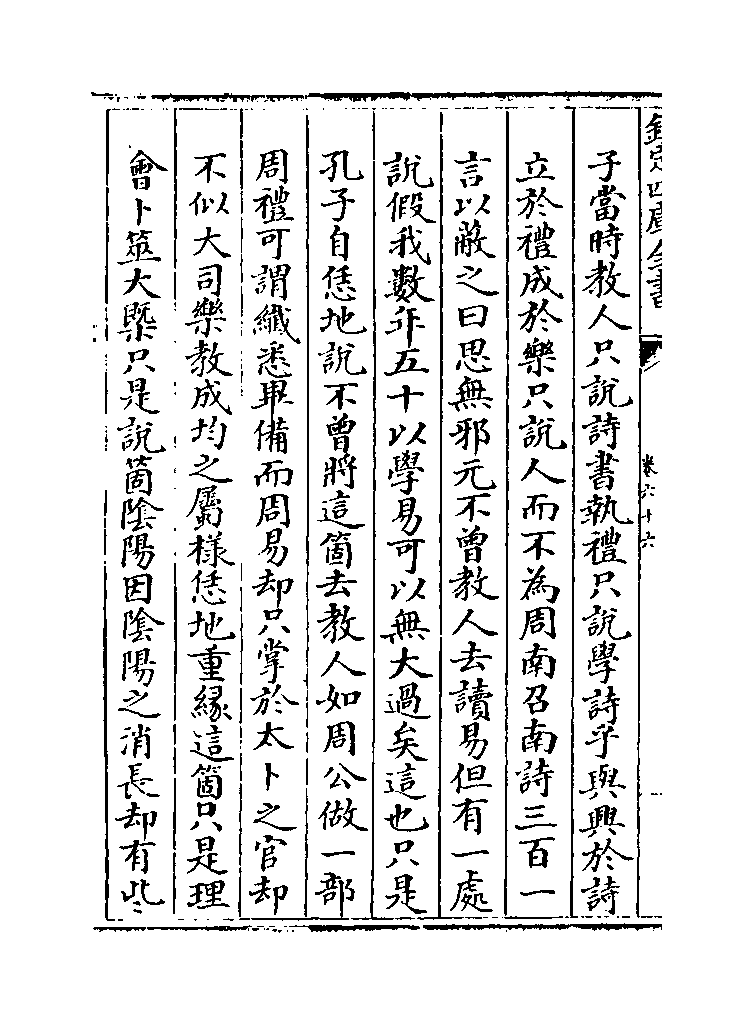 欽定四庫全書
卷六十六
子當時教人只說詩書執禮只說學詩乎與興於詩
立於禮成於樂只說人而不為周南召南詩三百一
言以蔽之曰思無邪元不曾教人去讀易但有一處
說假我數年五十以學易可以無大過矣這也只是
孔子自恁地說不曾將這箇去教人如周公做一部
周禮可謂纖悉畢備而周易却只掌於太卜之官却
不似大司樂教成均之屬樣恁地重縁這箇只是理
會卜筮大槩只是說箇陰陽因陰陽之消長却有些